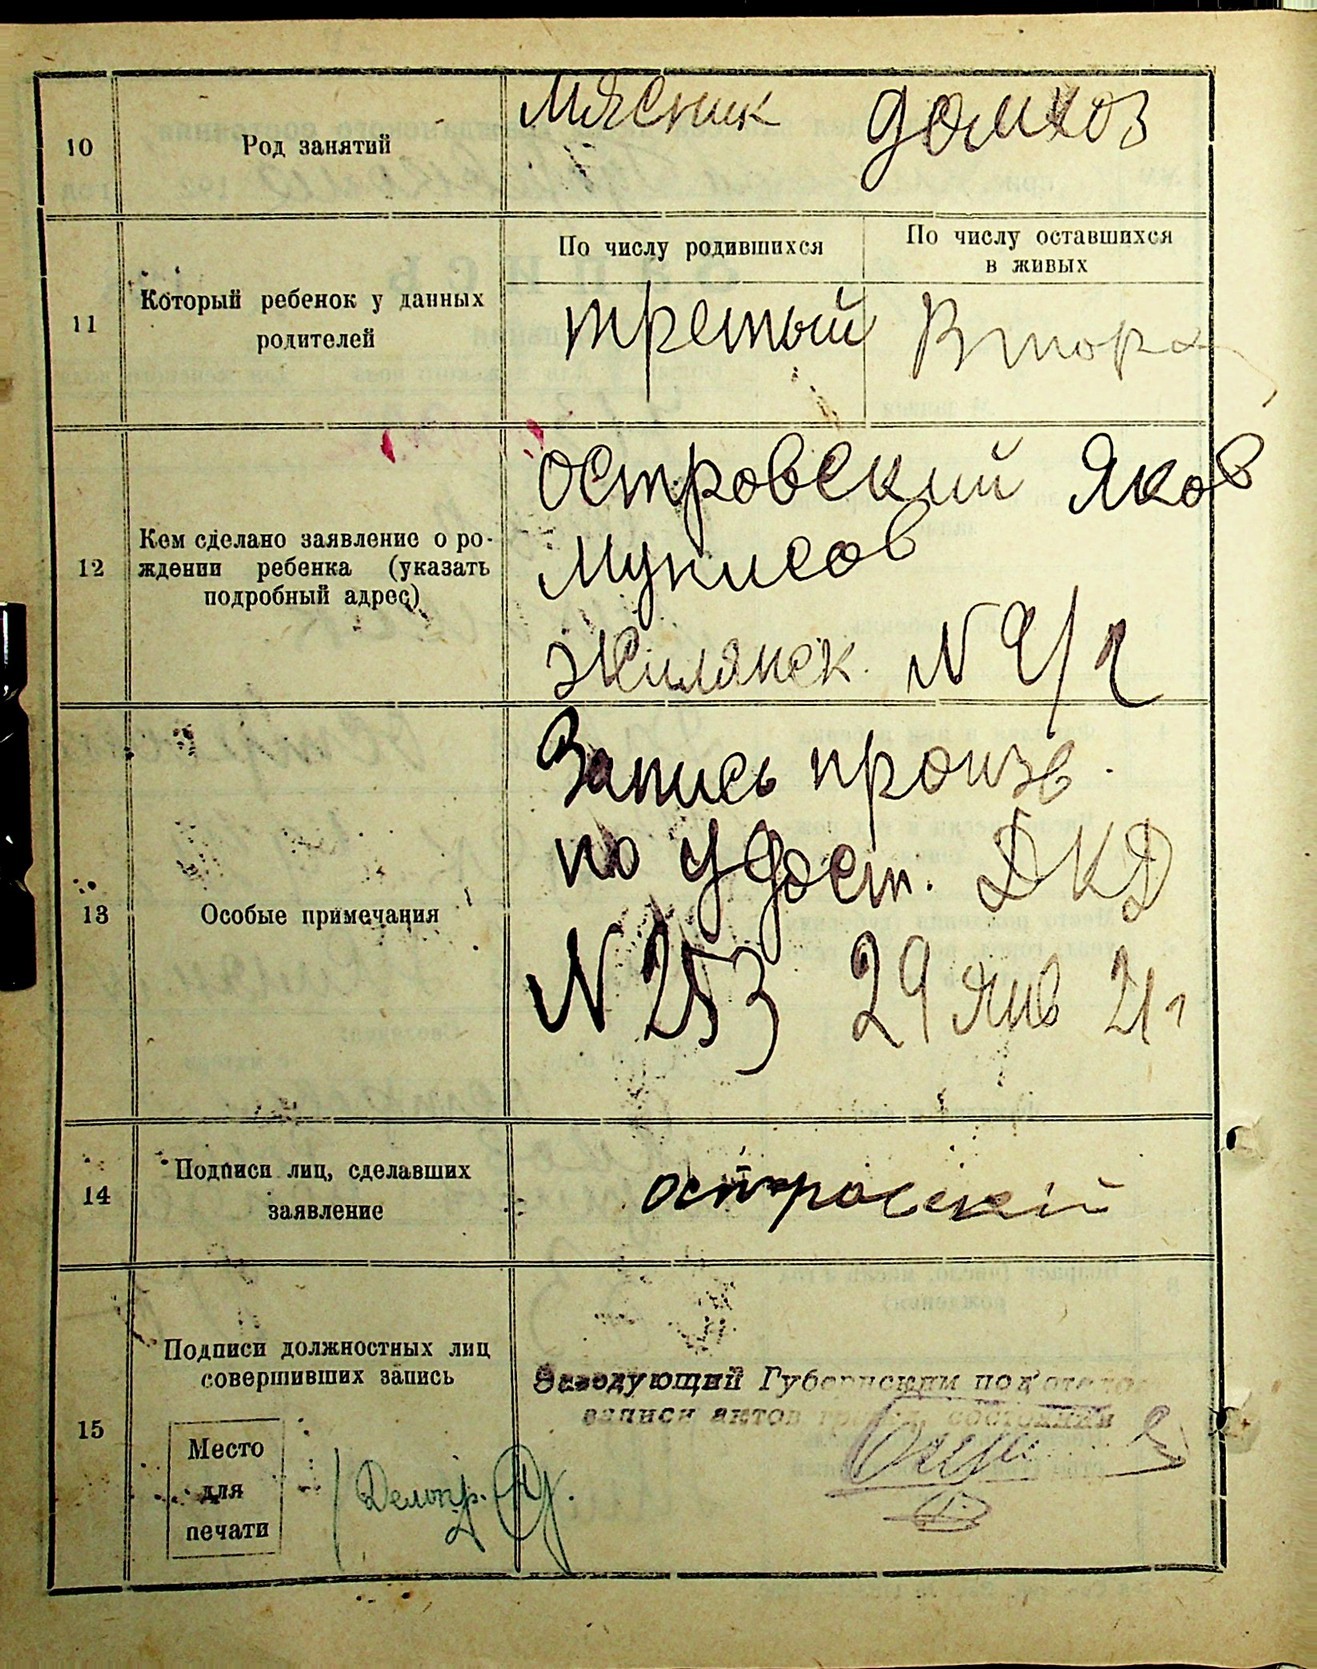 10
Род занятий
мясник домхоз
11
Который ребенок у данных
родителей
По числу родившихся
По числу оставшихся
в живых
третый
Втор
12
Кем сделано заявление о ро-
ждении ребенка (указать
подробный адрес)
островский Яков
Мунисов
Жилянск. N
13
Особые примечания
Запись произв.
по удост. ДКД
N 253 29 янв 21 г
14
Подписи лиц, сделавших
заявление
островскій
15
Подписи должностных лиц
совершивших запись
Место
для
печати
Заведующий Губернским под'отделом
записи актов гражд. состояния
Делопр.